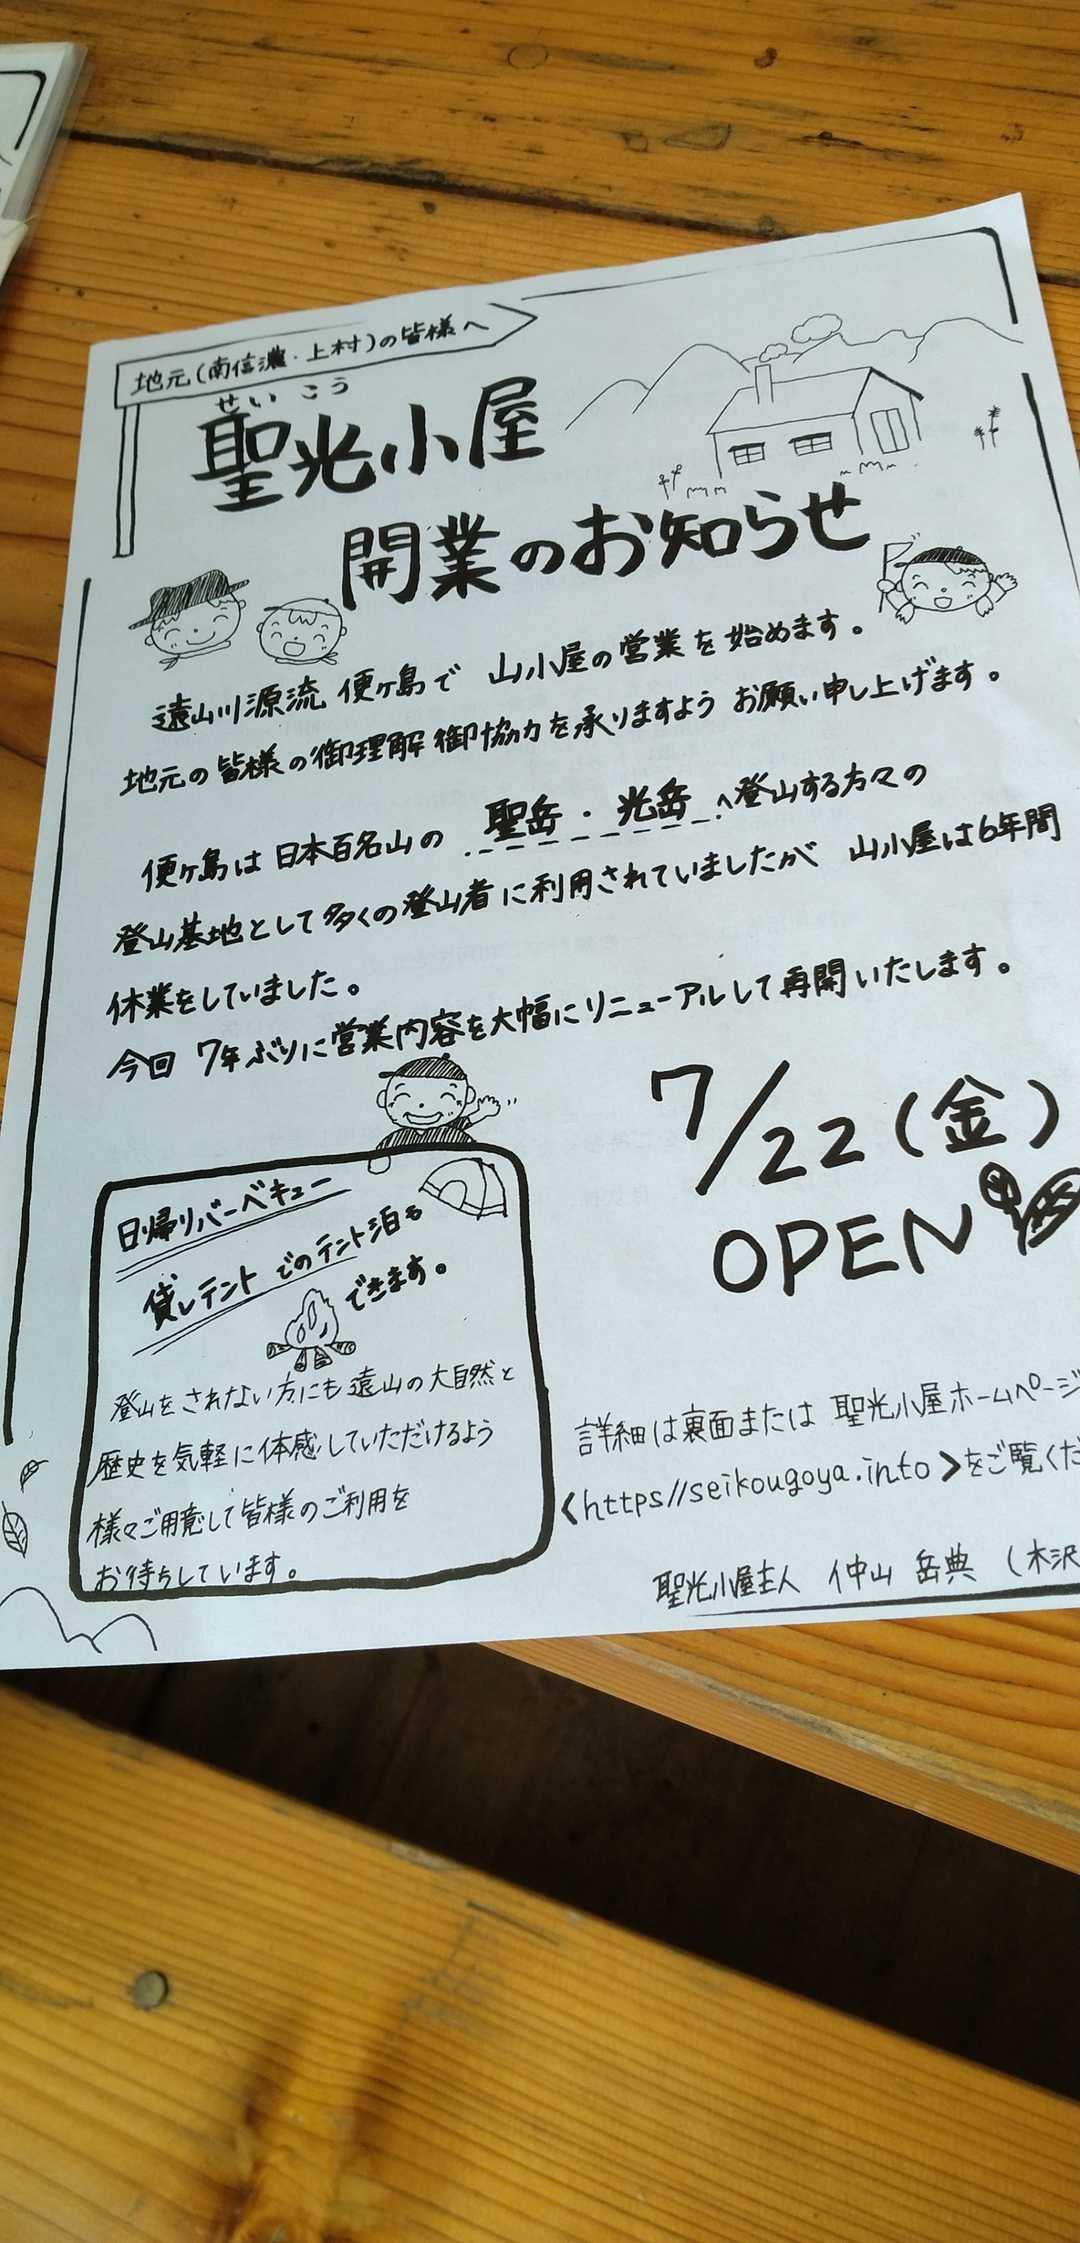 地元(南信濃・上村)の皆様へ
せいこう
聖光小屋
開業のお知らせ
遠山川源流 便ヶ島で 山小屋の営業を始めます。
地元の皆様の御理解御協力を承りますよう お願い申し上げます。
便ヶ島は日本百名山の 聖岳・光岳へ登山する方々の
登山基地として多くの登山者に利用されていましたが 山小屋は6年間
休業をしていました。
今回 7年ぶりに営業内容を大幅にリニューアルして再開いたします。
7/22(金)
OPEN
日帰りバーベキュー
貸しテントでのテント泊も
できます。
登山をされない方にも遠山の大自然と
歴史を気軽に体感していただけるよう
様々ご用意して皆様のご利用を
お待ちしています。
詳細は裏面または 聖光小屋ホームページ
<https//seikougoya.info>をご覧くだ
聖光小屋主人 仲山 岳典 (木沢